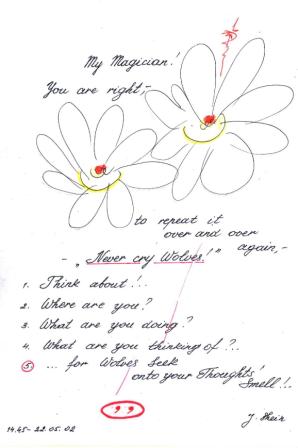 My Magician!
You are right,-
to repeat it
over and over
again,-
- "Never cry Wolves!"
1. Think about!..
2. Where are you?
3. What are you doing?
4. What are you thinking of?..
5 ... for Wolves Seek
onto your Thoughts'
Smell!..
14.45-22.05.02